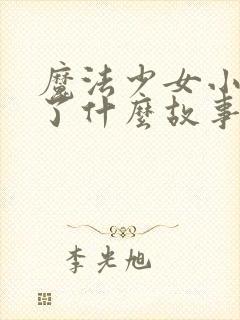 魔法少女小
了什麼故事
李光旭